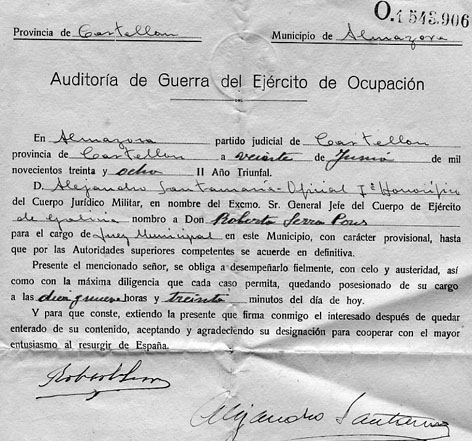 O.1543.906
Provincia de Castellon Municipio de Almazora
Auditoría de Guerra del Ejército de Ocupación
En Almazora partido judicial de Castellon
provincia de Castellon a veinte de Junio de mil
novecientos treinta y ocho II Año Triunfal.
D. Alejandro Santamaría Oficial 1º Honorífico
del Cuerpo Jurídico Militar, en nombre del Excmo. Sr. General Jefe del Cuerpo de Ejército
de Galicia nombro a Don Roberto Serra Pous
para el cargo de Juez Municipal en este Municipio, con carácter provisional, hasta
que por las Autoridades superiores competentes se acuerde en definitiva.
Presente el mencionado señor, se obliga a desempeñarlo fielmente, con celo y austeridad, así
como con la máxima diligencia que cada caso permita, quedando posesionado de su cargo
a las diez y nueve horas y treinta minutos del día de hoy.
Y para que conste, extiendo la presente que firma conmigo el interesado después de quedar
enterado de su contenido, aceptando y agradeciendo su designación para cooperar con el mayor
entusiasmo al resurgir de España.
Alejandro